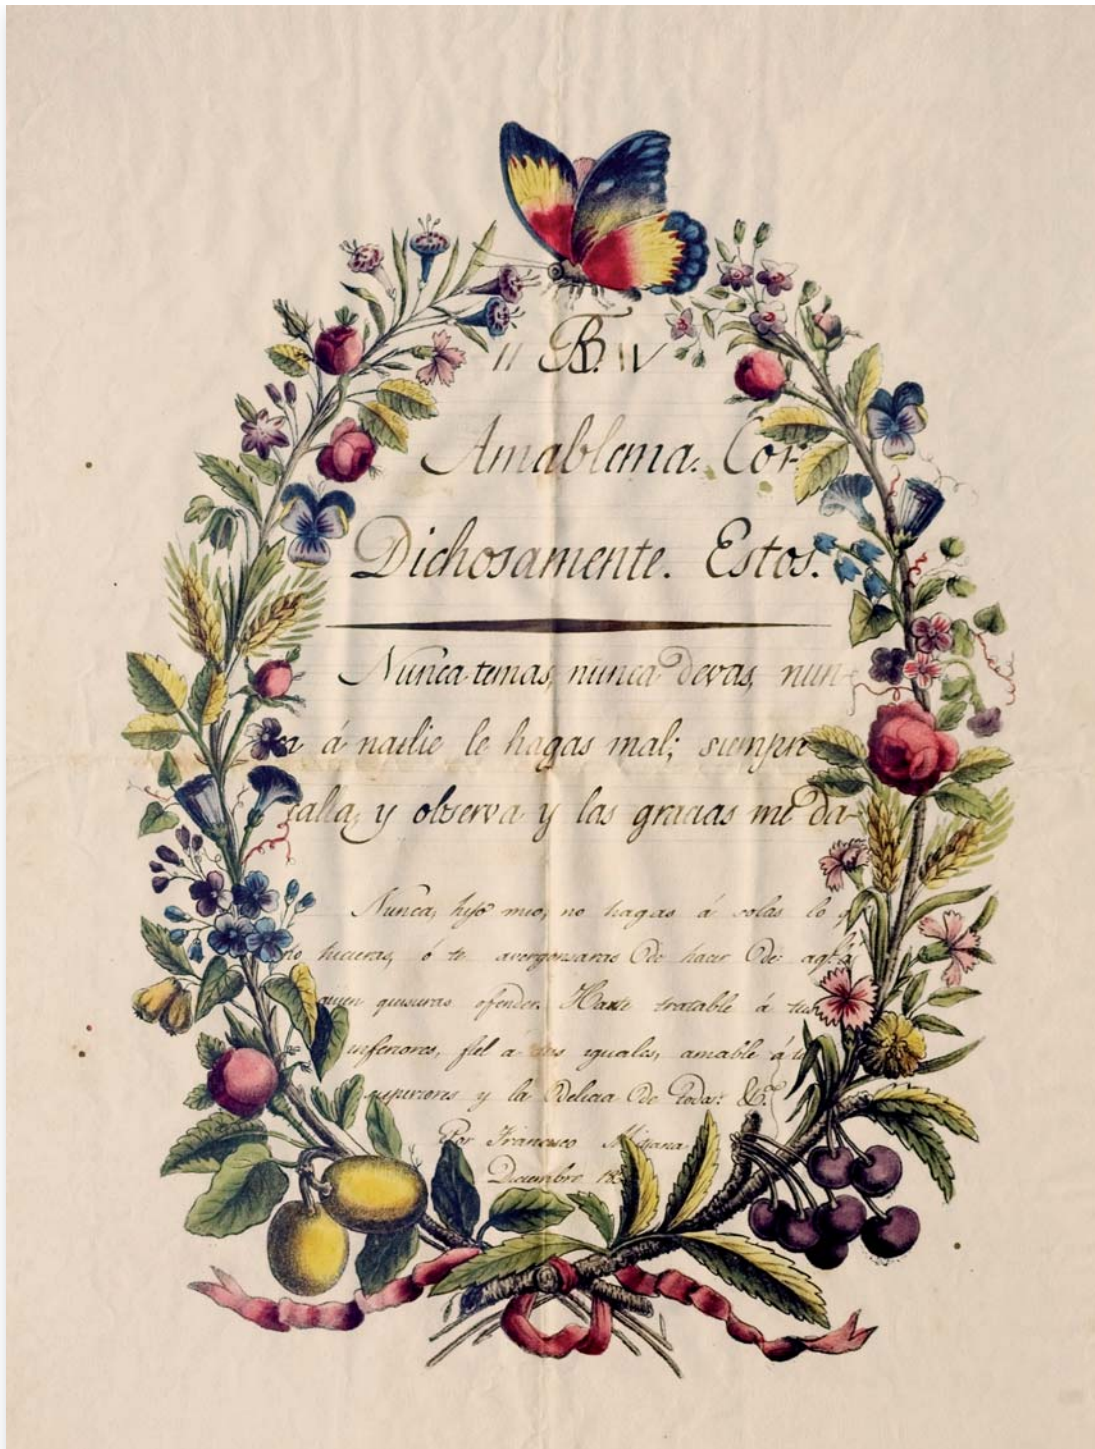 Amablema. Cor
Dichosamente. Estos.
Nunca temas, nunca devas, nun-
ca á nadie le hagas mal; siempre
calla, y observa y las gracias me da-
Nunca, hijo mio, no hagas á solas lo q
no hicieras, ó te avergonsaras de hacer de
quien quisieras ofender. Harte tratable á tus
inferiores, fiel a tus iguales, amable á
superiores y la delicia de todas. &c.
Por Francisco
Diciembre